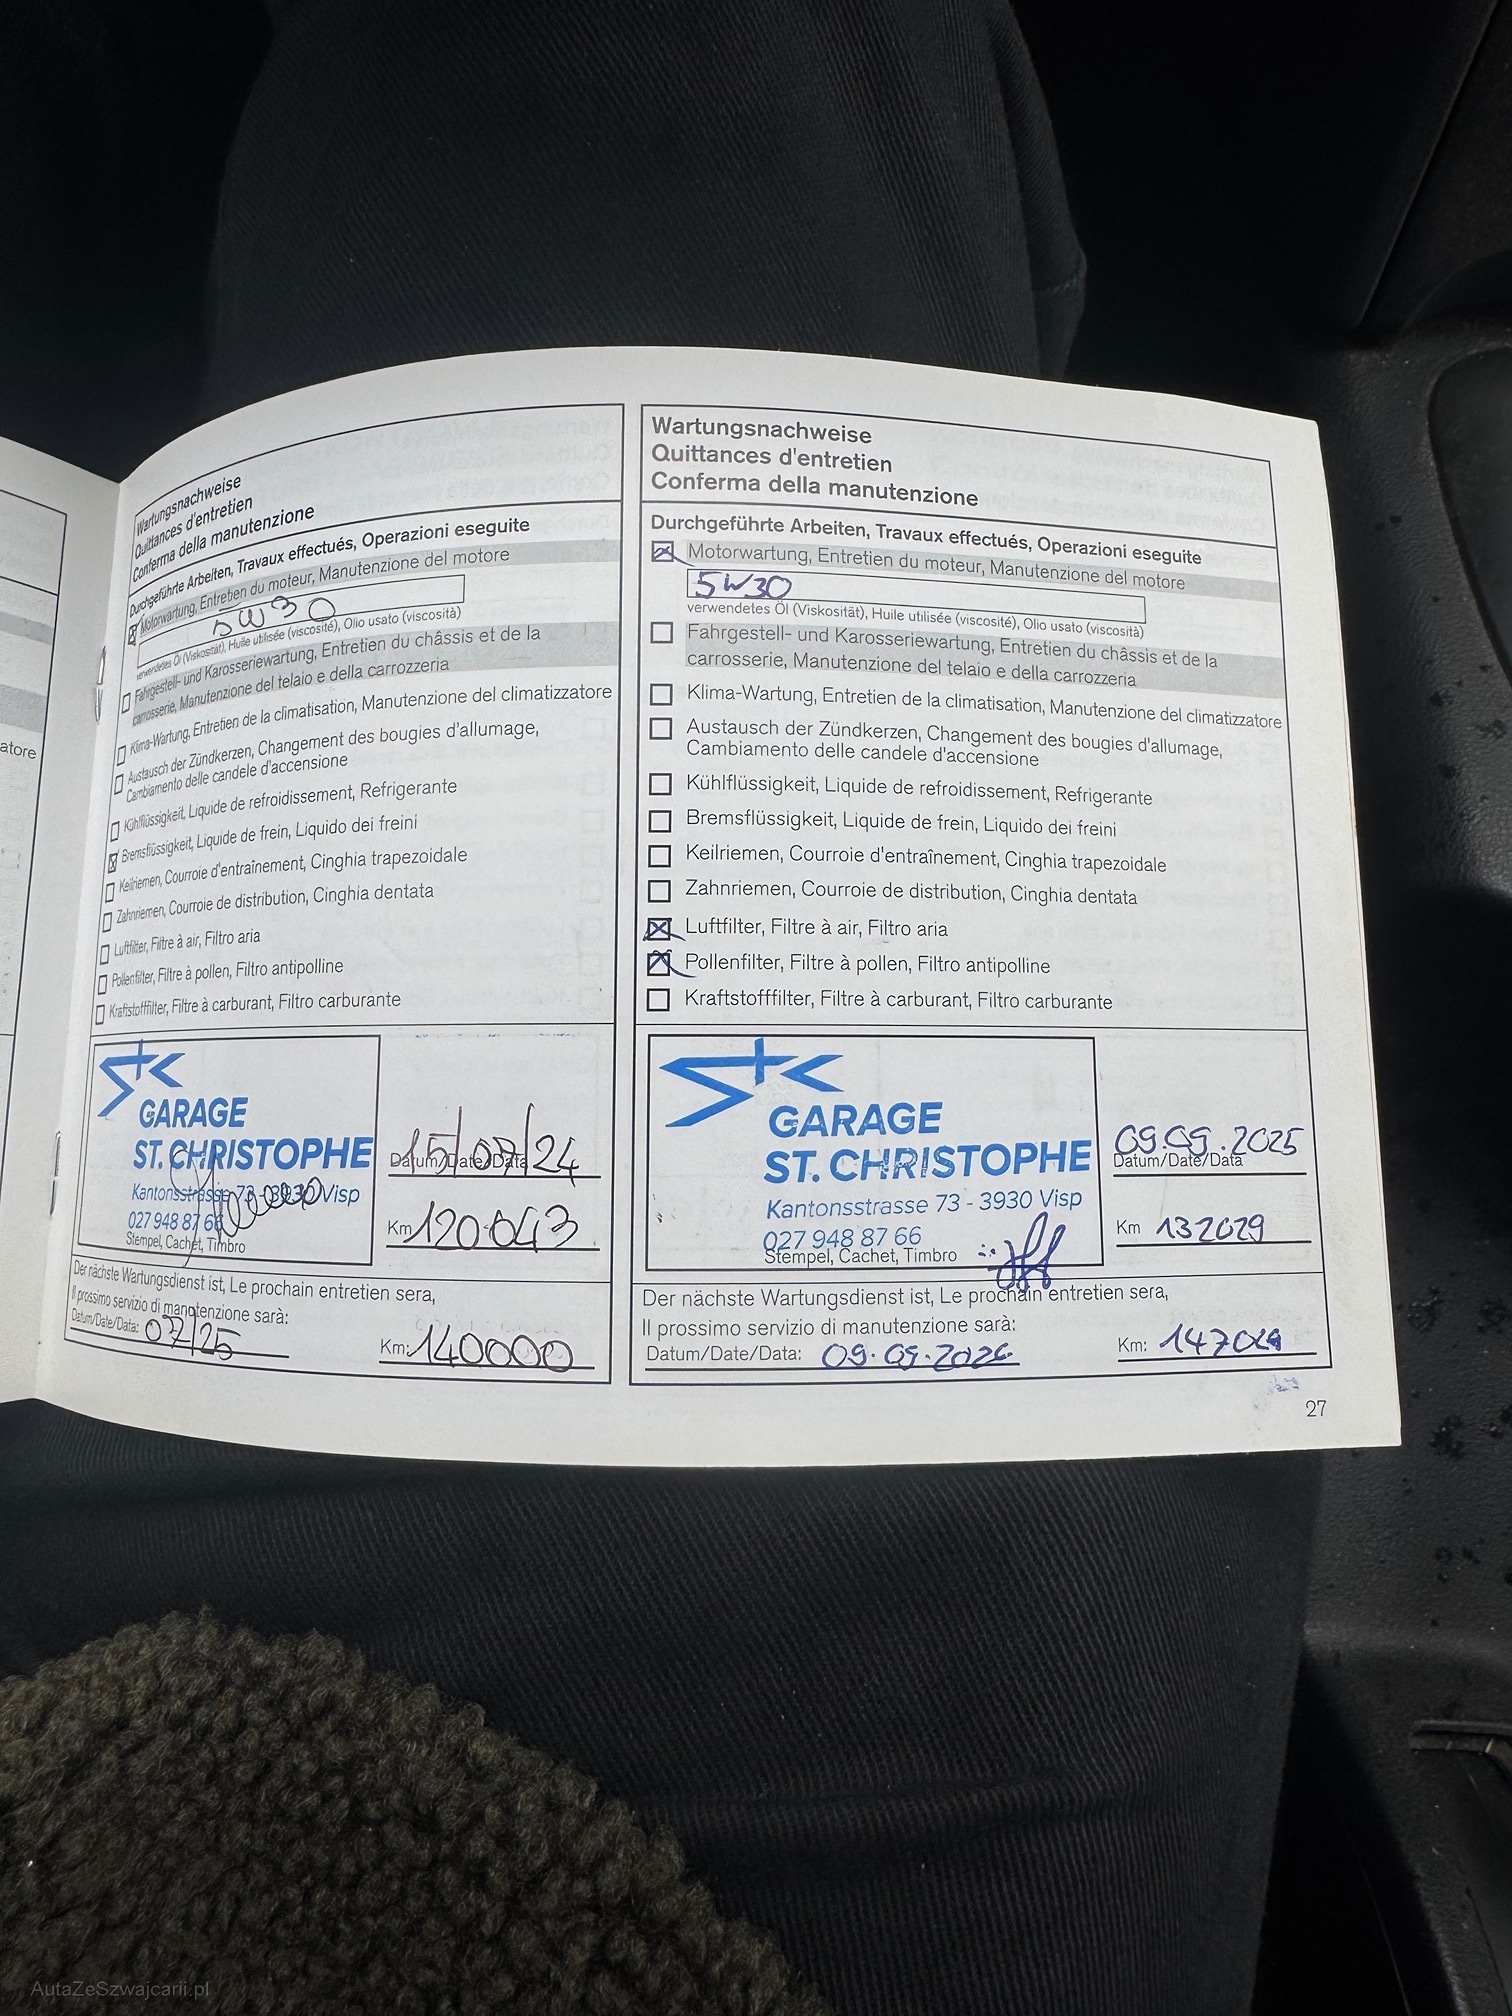 atore
Wartungsnachweise
Quittances d'entretien
Conferma della manutenzione
Durchgeführte Arbeiten, Travaux effectués, Operazioni eseguite
Motorwartung, Entretien du moteur, Manutenzione del motore
5W30
verwendetes Öl (Viskosität), Huile utilisée (viscosité), Olio usato (viscosità)
Fahrgestell- und Karosseriewartung, Entretien du châssis et de la
carrosserie, Manutenzione del telaio e della carrozzeria
Klima-Wartung, Entretien de la climatisation, Manutenzione del climatizzatore
Austausch der Zündkerzen, Changement des bougies d'allumage,
Cambiamento delle candele d'accensione
Kühlflüssigkeit, Liquide de refroidissement, Refrigerante
Bremsflüssigkeit, Liquide de frein, Liquido dei freini
Keilriemen, Courroie d'entraînement, Cinghia trapezoidale
Zahnriemen, Courroie de distribution, Cinghia dentata
Luftfilter, Filtre à air, Filtro aria
Pollenfilter, Filtre à pollen, Filtro antipolline
Kraftstofffilter, Filtre à carburant, Filtro carburante
GARAGE
ST. CHRISTOPHE
Kantonsstrasse 73 - 3930 Visp
027 948 87 66
Stempel, Cachet, Timbro
15/07/24
Datum/Date/Data
Km 120.043
Der nächste Wartungsdienst ist, Le prochain entretien sera,
Il prossimo servizio di manutenzione sarà:
Datum/Date/Data: 07/25
Km: 140000
Wartungsnachweise
Quittances d'entretien
Conferma della manutenzione
Durchgeführte Arbeiten, Travaux effectués, Operazioni eseguite
Motorwartung, Entretien du moteur, Manutenzione del motore
5W30
verwendetes Öl (Viskosität), Huile utilisée (viscosité), Olio usato (viscosità)
Fahrgestell- und Karosseriewartung, Entretien du châssis et de la
carrosserie, Manutenzione del telaio e della carrozzeria
Klima-Wartung, Entretien de la climatisation, Manutenzione del climatizzatore
Austausch der Zündkerzen, Changement des bougies d'allumage,
Cambiamento delle candele d'accensione
Kühlflüssigkeit, Liquide de refroidissement, Refrigerante
Bremsflüssigkeit, Liquide de frein, Liquido dei freini
Keilriemen, Courroie d'entraînement, Cinghia trapezoidale
Zahnriemen, Courroie de distribution, Cinghia dentata
Luftfilter, Filtre à air, Filtro aria
Pollenfilter, Filtre à pollen, Filtro antipolline
Kraftstofffilter, Filtre à carburant, Filtro carburante
GARAGE
ST. CHRISTOPHE
Kantonsstrasse 73 - 3930 Visp
027 948 87 66
Stempel, Cachet, Timbro
09.09.2025
Datum/Date/Data
Km 132029
Der nächste Wartungsdienst ist, Le prochain entretien sera,
Il prossimo servizio di manutenzione sarà:
Datum/Date/Data: 09.09.2026
Km: 147029
27
AutaZeSzwajcarii.pl